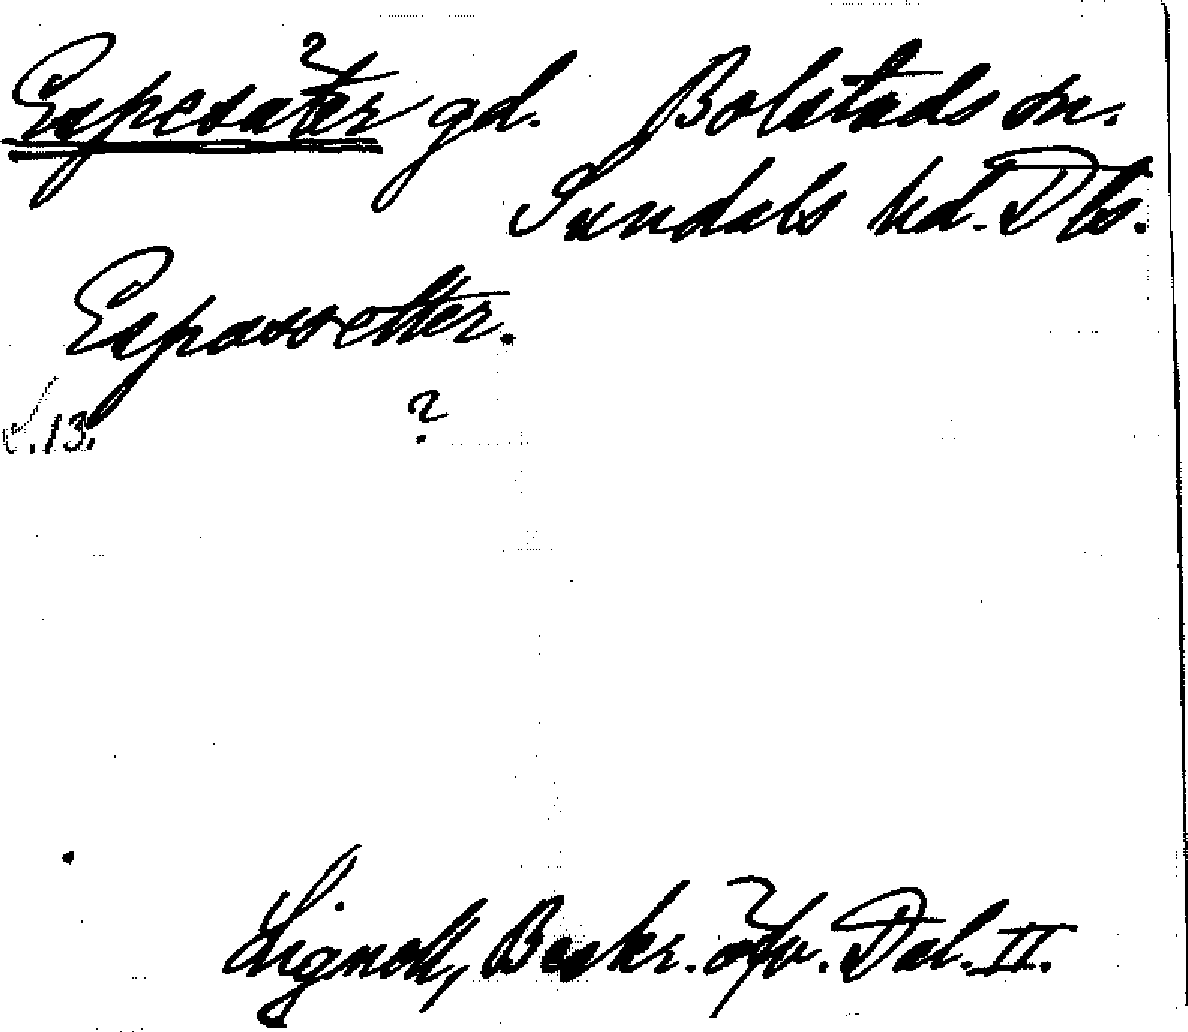 Espesäter gd. Bolstads sn.
Sundals hd. Dls.
Espassetter.
L.13. ?
Lignell, Beskr. öfv. Dal. II.